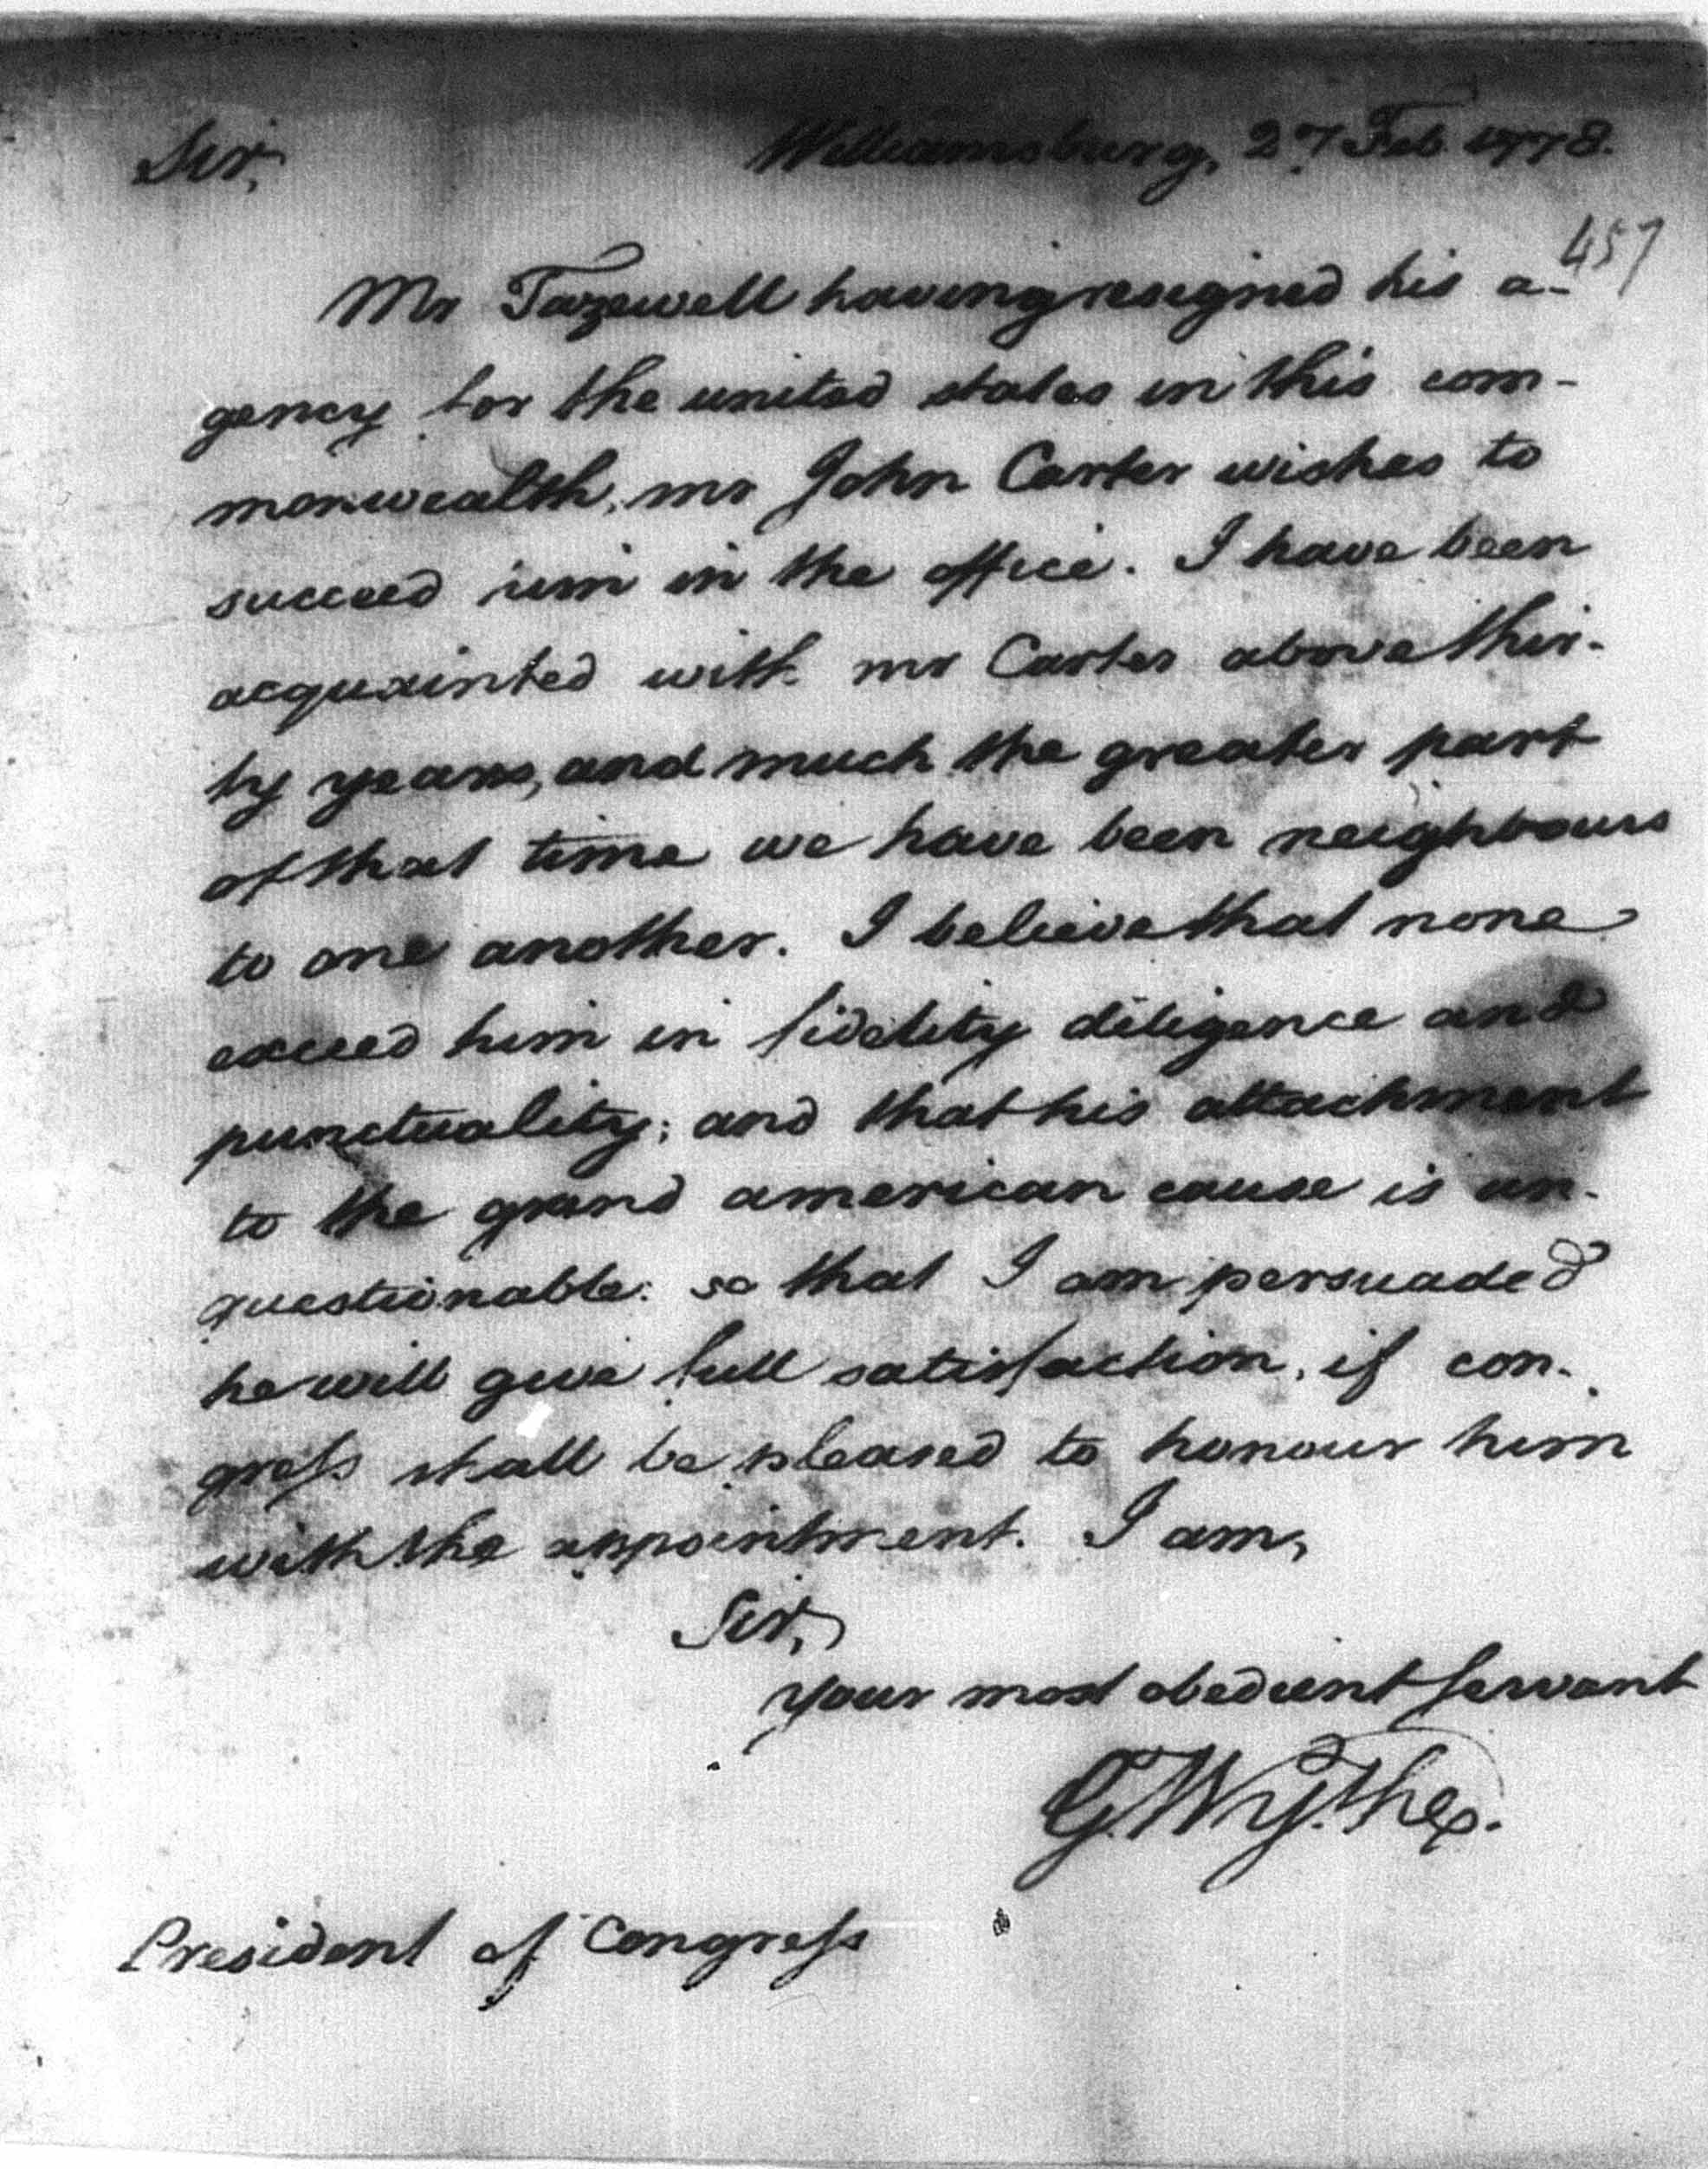 Sir, Williamsburg, 27 Feb. 1778.
457
Mr Tazewell having resigned his a-
gency for the united states in this com-
monwealth, mr John Carter wishes to
succeed him in the office. I have been
acquainted with mr Carter above thir-
ty years, and much the greater part
of that time we have been neighbours
to one another. I believe that none
exceed him in fidelity diligence and
punctuality; and that his attachment
to the grand american cause is un-
questionable: so that I am persuaded
he will give full satisfaction, if con-
gress shall be pleased to honour him
with the appointment. I am,
Sir,
Your most obedient servant
G. Wythe.
President of Congress